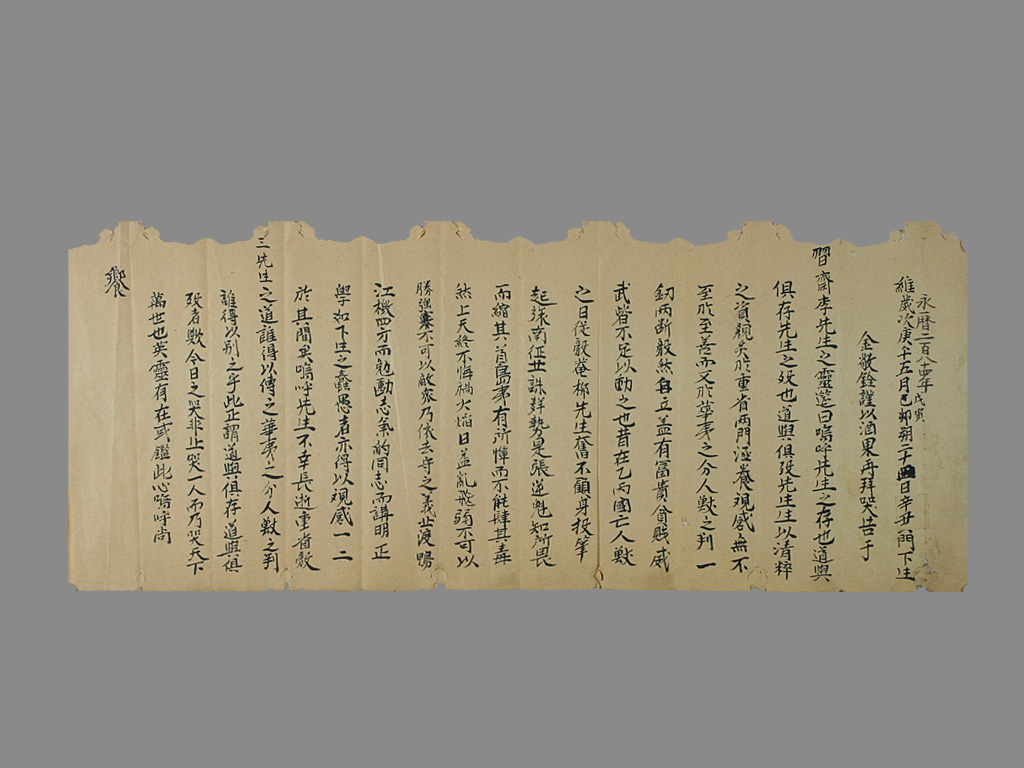 永曆二百八十四年戊寅
維歲次庚午五月己卯朔二十四日辛丑門下生
金敬銓謹以酒果再拜哭告于
習齋李先生之靈筵曰嗚呼先生之存也道與
俱存先生之歿也道與俱歿先生生以清粹
之資親炙於重省兩門涵養觀感無不
至於至善而又於華夷之分人獸之判一
釰兩斷毅然自立盖有富貴貧賤威
武皆不足以動之也昔在乙丙國亡人獸
之日從毅菴柳先生奮不顧身投筆
起張南征北誅群勢是張逆魁知所畏
而縮其首島夷有所憚而不能肆其毒
然上天終不悔禍火焰日益亂飛弱不可以
勝強寡不可以敵衆乃依去守之義北渡鴨
江機四方而勉勵志氣酌同志而講明正
學如下生之蠢愚者亦得以觀感一二
於其間矣嗚呼先生不幸長逝重省毅
三先生之道誰得以傳之華夷之分人獸之判
誰得以別之乎此正謂道與俱存道與俱
歿者歟今日之哭非止哭一人而乃哭天下
萬世也英靈有在或鑑此心嗚呼尚
饗